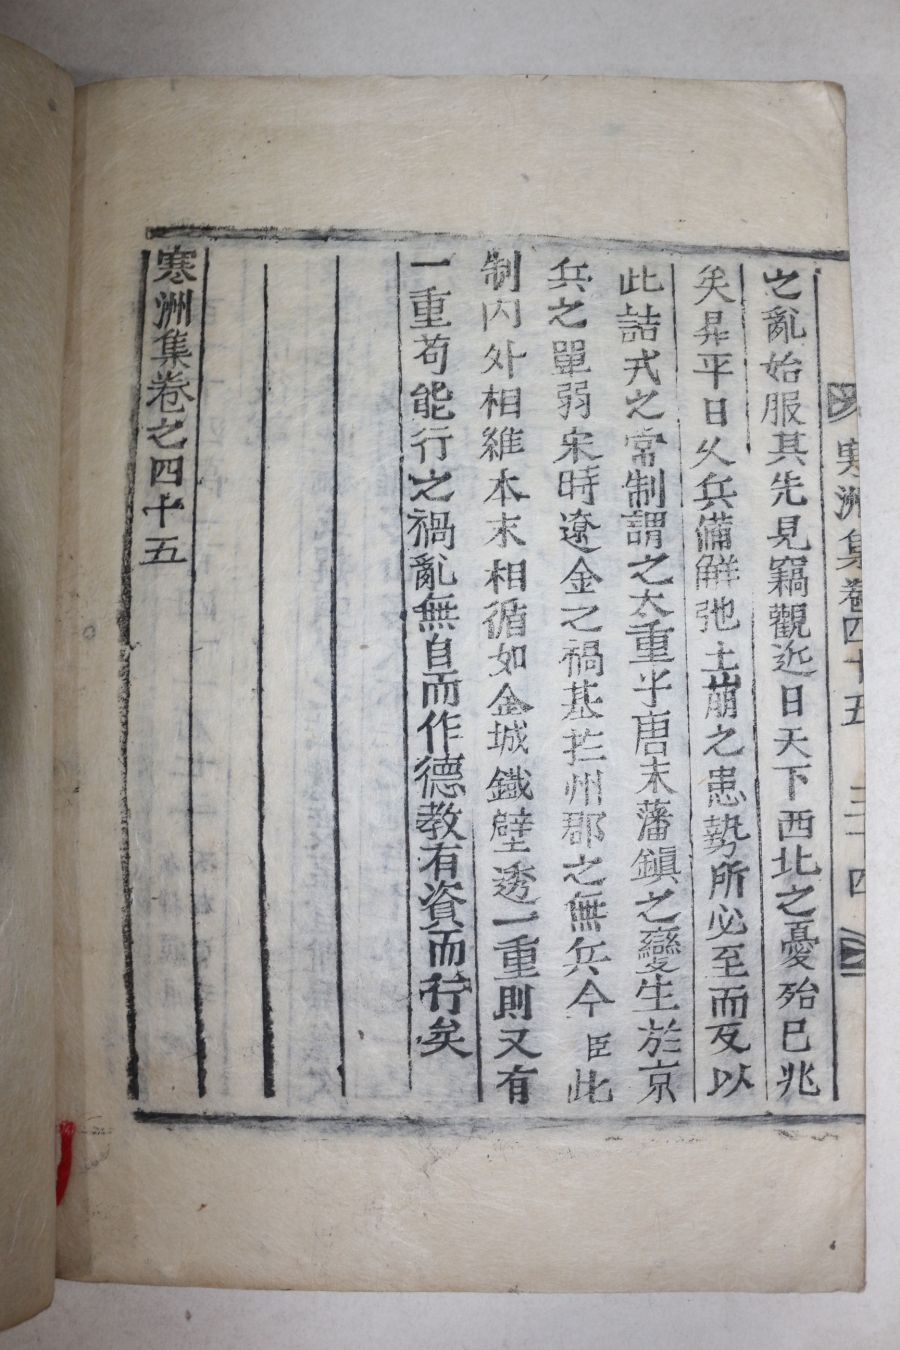 寒洲集卷四十五 三十四
之亂始服其先見竊觀近日天下西北之憂殆已兆
矣昇平日久兵備解弛土崩之患勢所必至而反以
此詰戎之常制謂之太重乎唐末藩鎭之變生於京
兵之單弱宋時遼金之禍基於州郡之無兵今臣此
制內外相維本末相循如金城鐵壁透一重則又有
一重苟能行之禍亂無自而作德敎有資而行矣
寒洲集卷之四十五